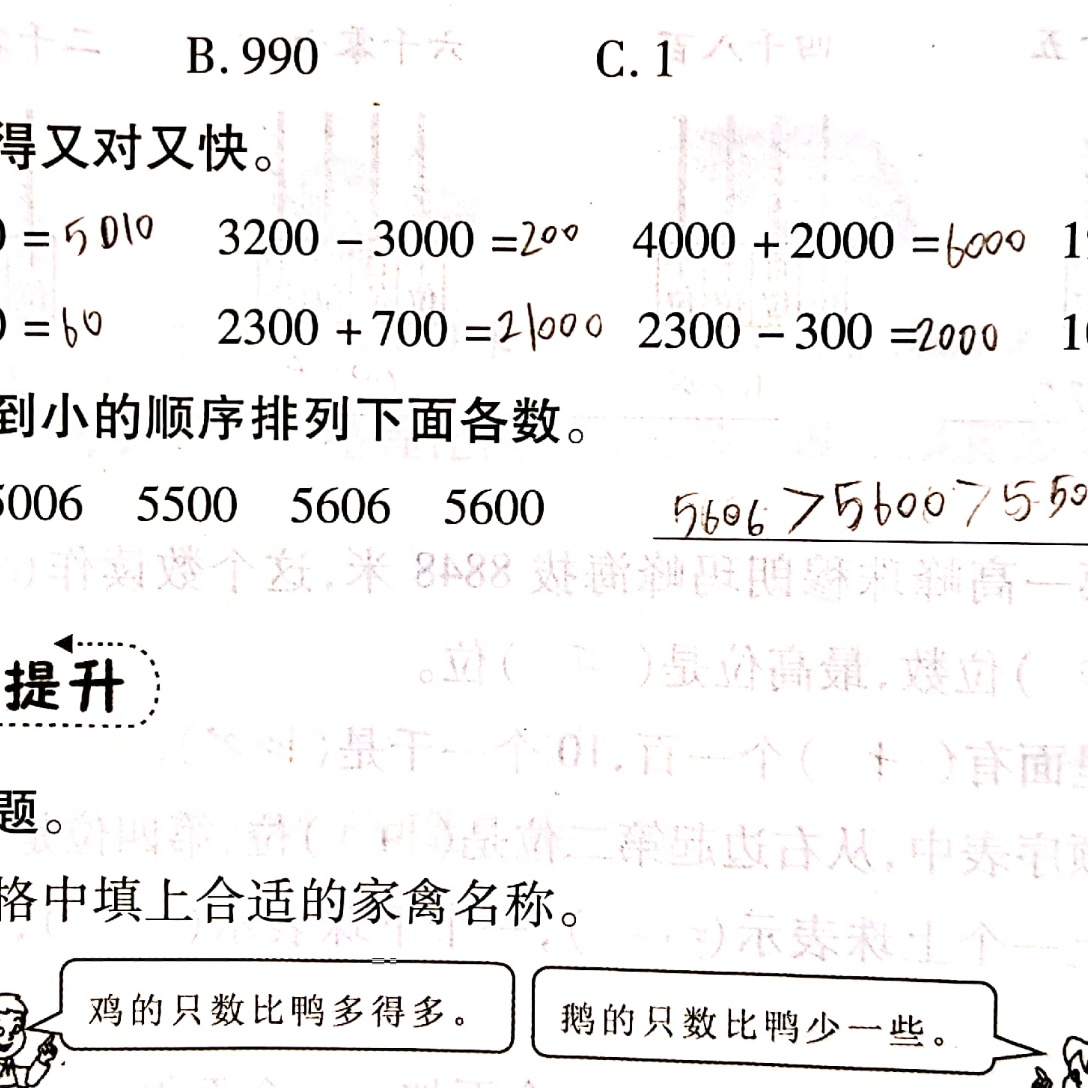 B. 990 C. 1
得又对又快。
= 5010 3200 - 3000 = 200 4000 + 2000 = 6000 1
= 60 2300 + 700 = 21000 2300 - 300 = 2000 1
到小的顺序排列下面各数。
5006 5500 5606 5600 5606 > 5600 > 550
提升
题。
格中填上合适的家禽名称。
鸡的只数比鸭多得多。 鹅的只数比鸭少一些。